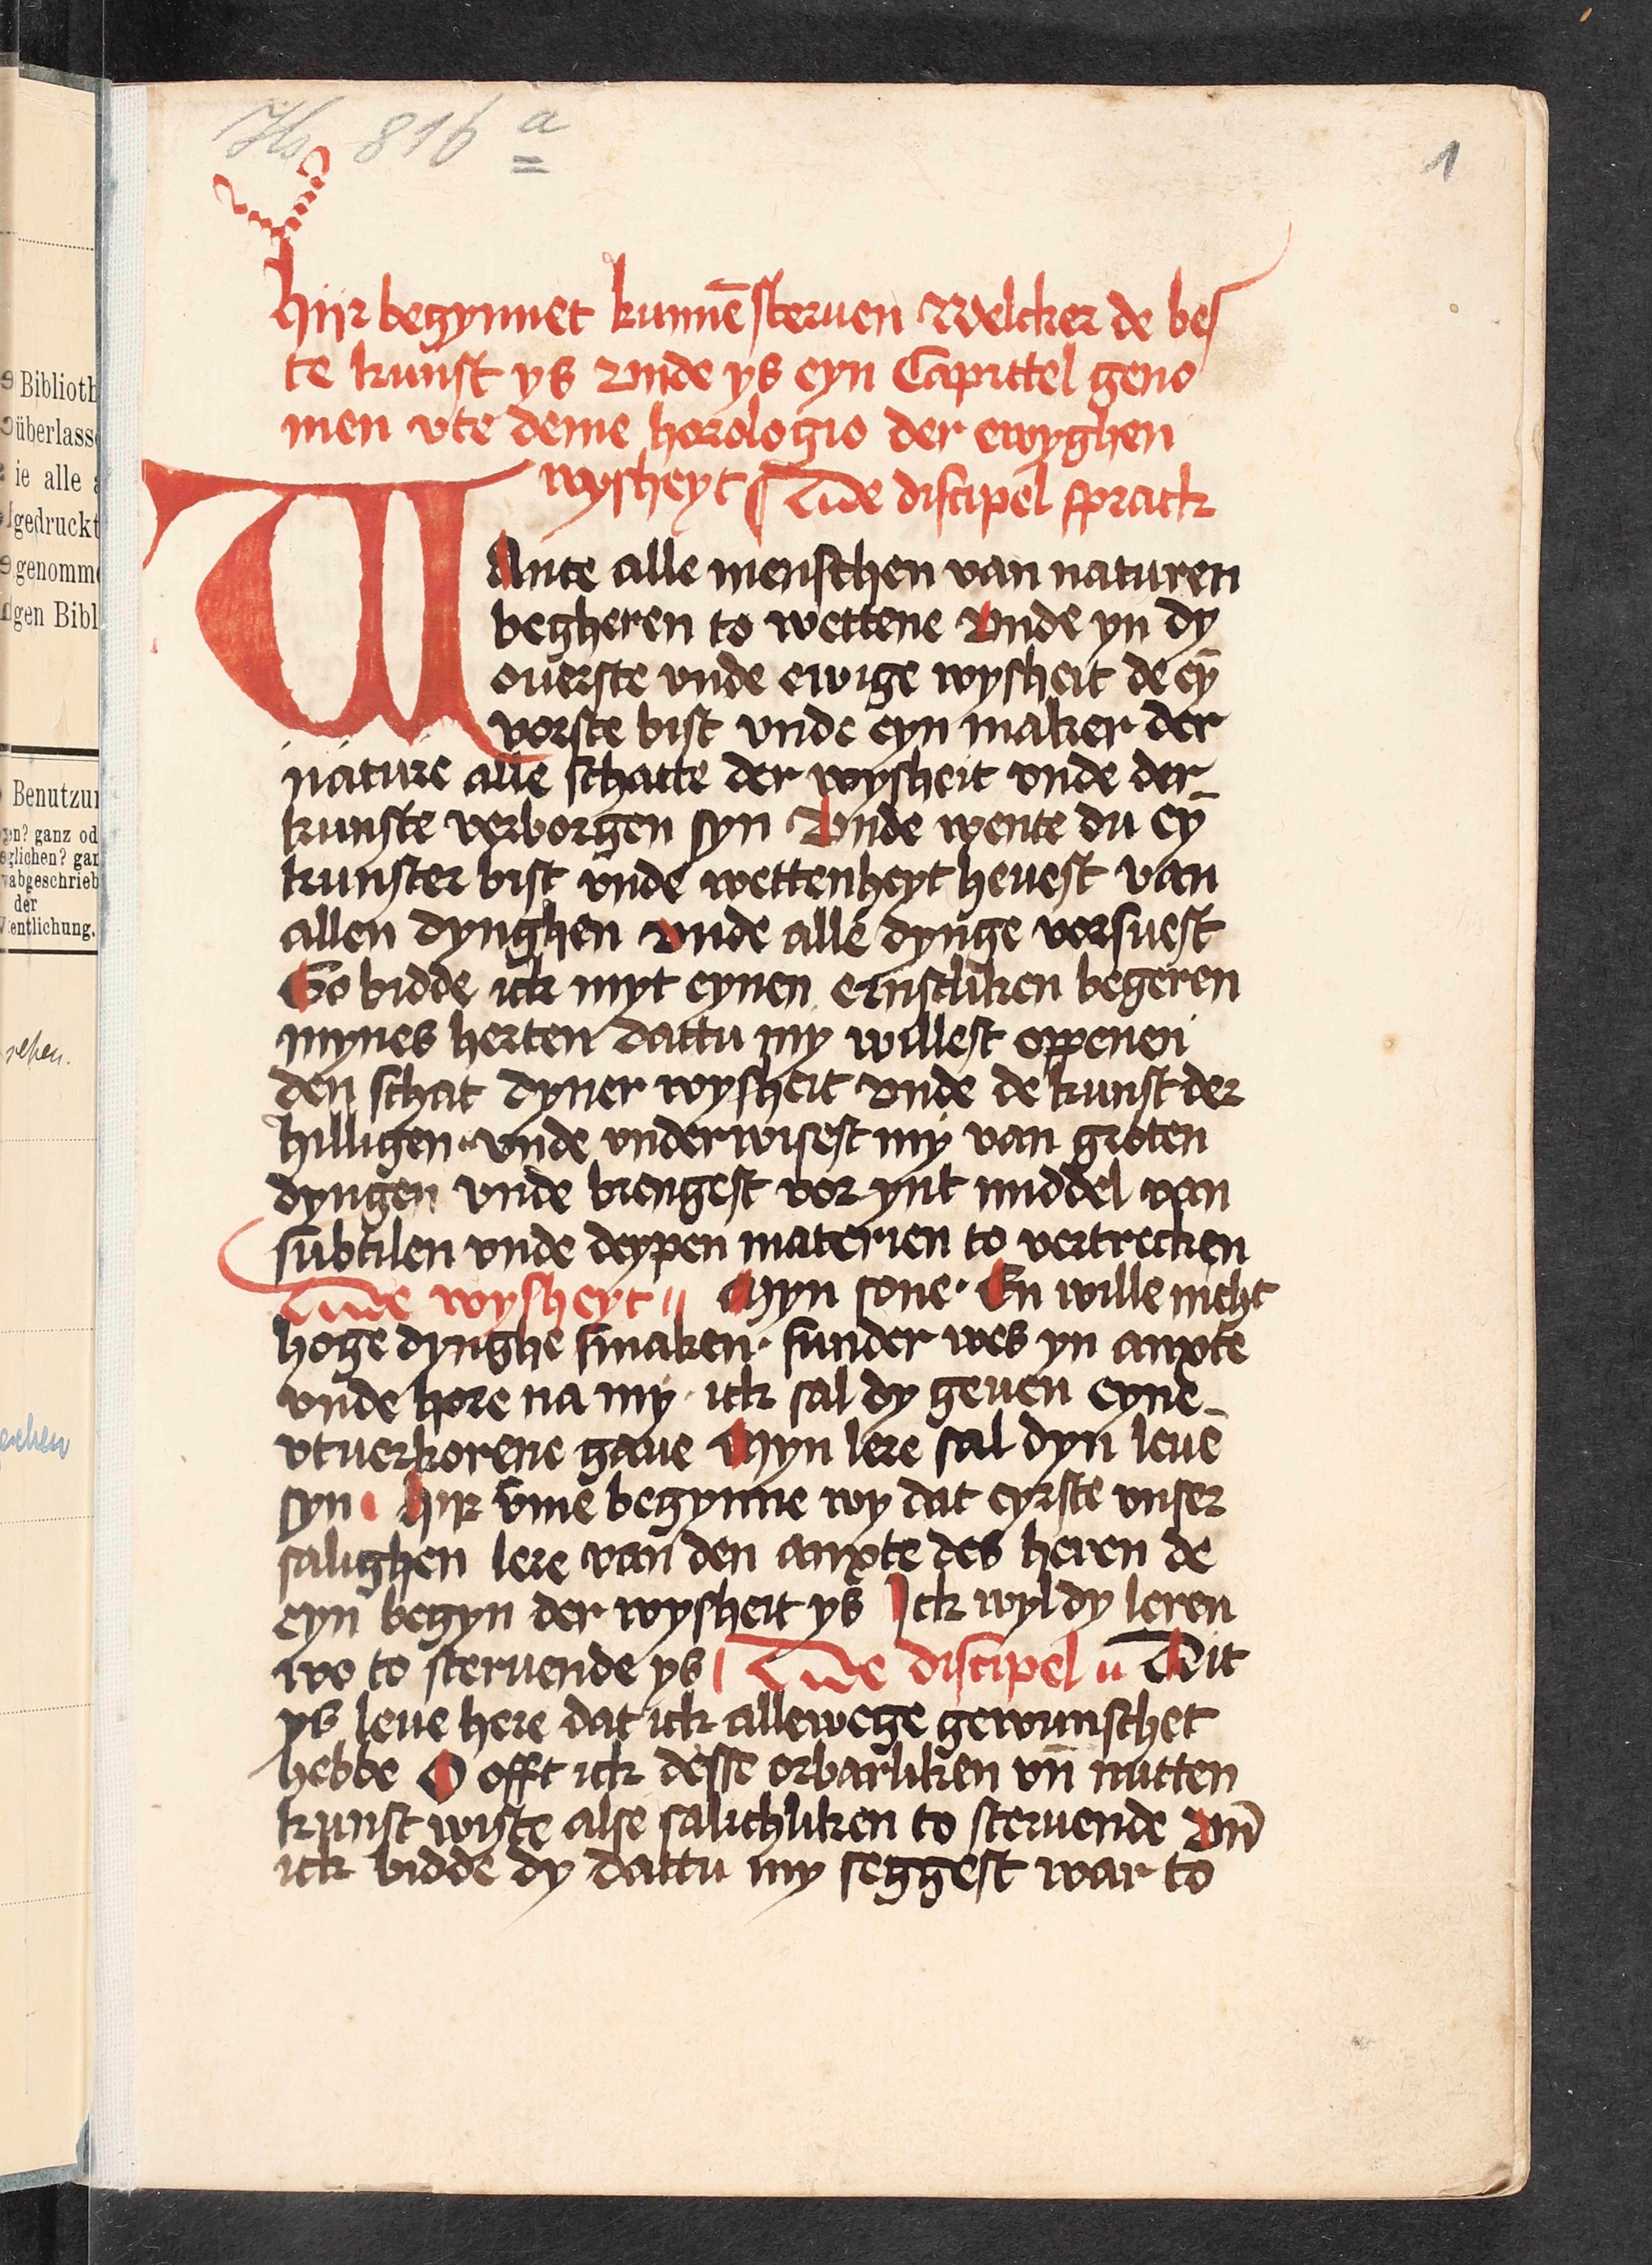 Hs 816 a
1
Hijr begynnet kunnē sterven Welcker de bes
te kunst ys Unde ys eyn Capittel geno
men vte deme horologio der ewyghen
wysheyt De discipel sprack
WAnte alle menschen van naturen
begheren to wettene Unde yn dy
ouerste vnde ewige wysheit de eȳ
vorste bist vnde eyn maker der
nature alle schatte der wysheit vnde der
kunste verborgen syn Unde wente du eȳ
kunster bist vnde wettenheyt heuest van
allen dynghen Unde alle dynge vorsuest
So bidde ick myt eynen ernstliken begeren
mynes herten dattu my willest oppenen
den schat dyner wysheit vnde de kunst der
hilligen · vnde vnderwisest my van groten
dyngen vnde brengest vor ynt middel van
subtilen vnde deypen materien to vertrecken
De wysheyt Myn sone · En wille nicht
hoge dynghe smaken · sunder wes yn anxte
vnde hore na my · ick sal dy geuen eyne
vtuerkorene gaue Myn lere sal dyn leuē
syn Hijr vmē begynne wy dat eyrste vnser
salighen lere van den anxte des heren de
eyn begyn der wysheit ys Ick wyl dy leren
wo to steruende ys De discipel Dit
ys leue here dat ick allewege gewunschet
hebbe O offt ick desse orbarliken vn̄ nutten
kunst wiste alse salichliken to steruende Vn̄
ick bidde dy dattu my seggest war to
Biblioth
überlass
ie alle
gedruckt
genomm
gen Bibl
Benutzu
en? ganz od
glichen? gan
abgeschrieb
der
entlichung.